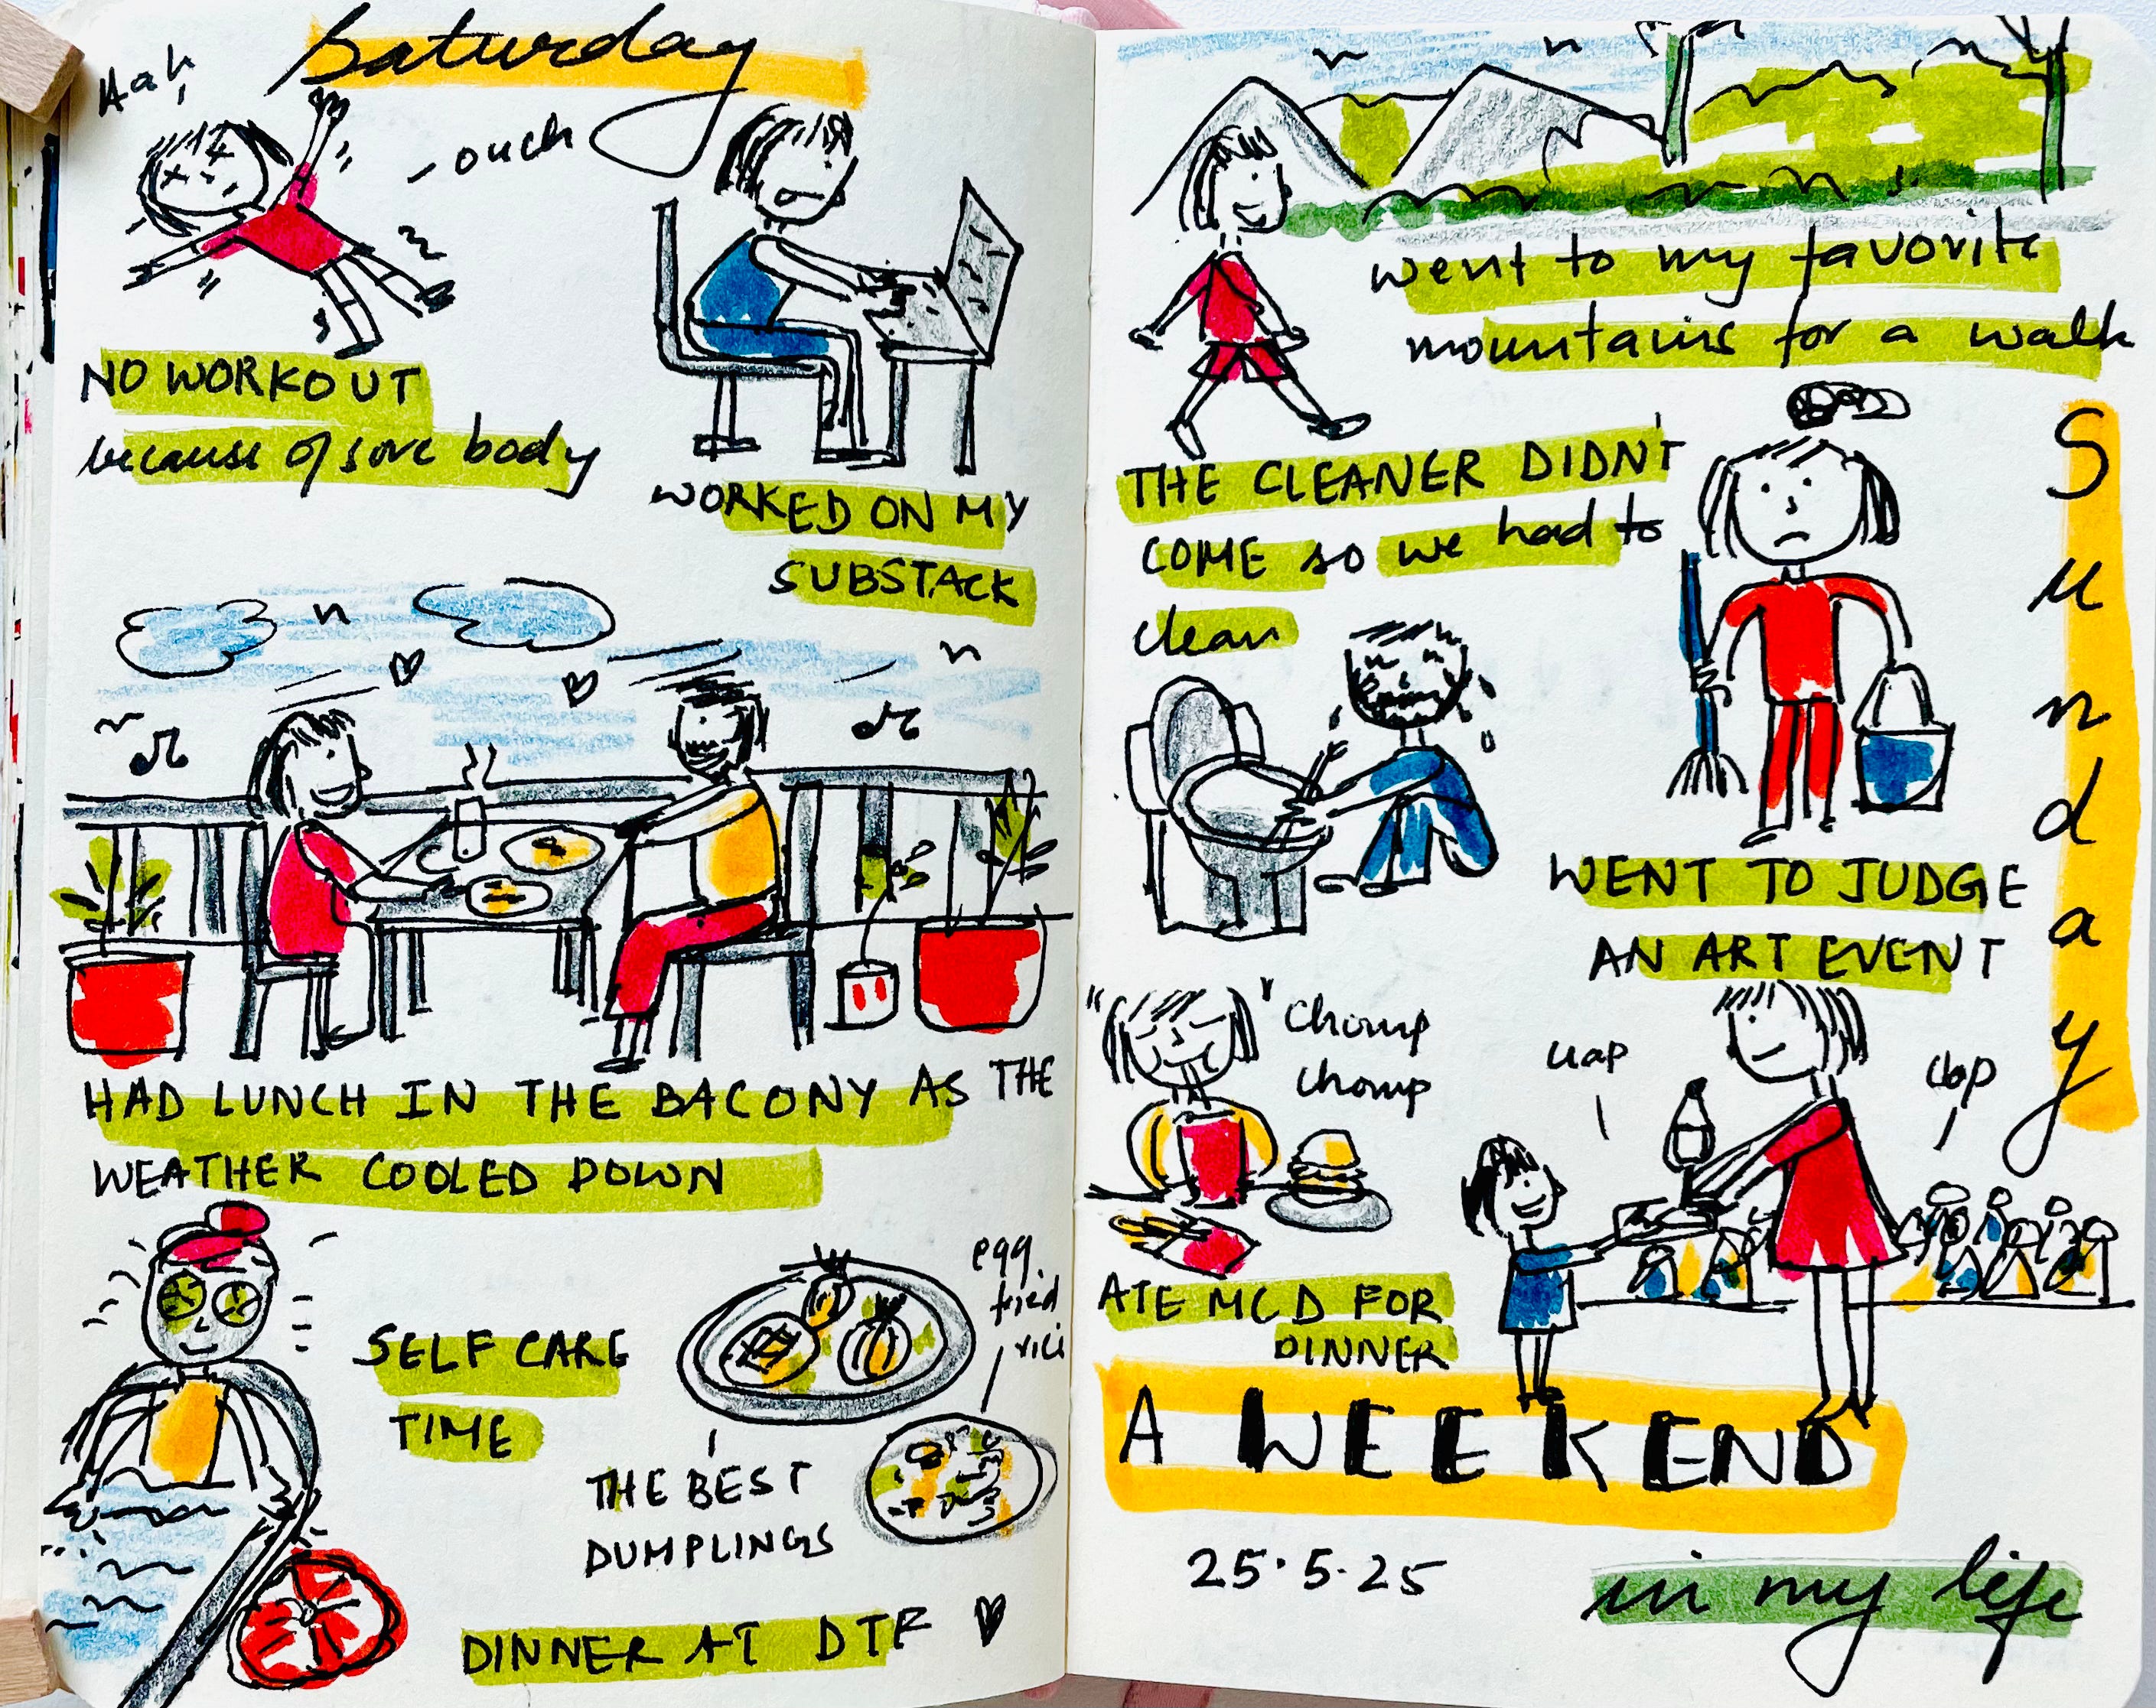 Saturday
Aah,
- ouch
NO WORKOUT
because of sore body
WORKED ON MY
SUBSTACK
HAD LUNCH IN THE BACONY AS THE
WEATHER COOLED DOWN
SELF CARE
TIME
egg
fried
rice
THE BEST
DUMPLINGS
DINNER AT DTF
went to my favorite
mountains for a walk
Sunday
THE CLEANER DIDN'T
COME so we had to
clean
WENT TO JUDGE
AN ART EVENT
"Chomp
chomp
clap
clap
ATE MCD FOR
DINNER
A WEEKEND
25.5.25
in my life